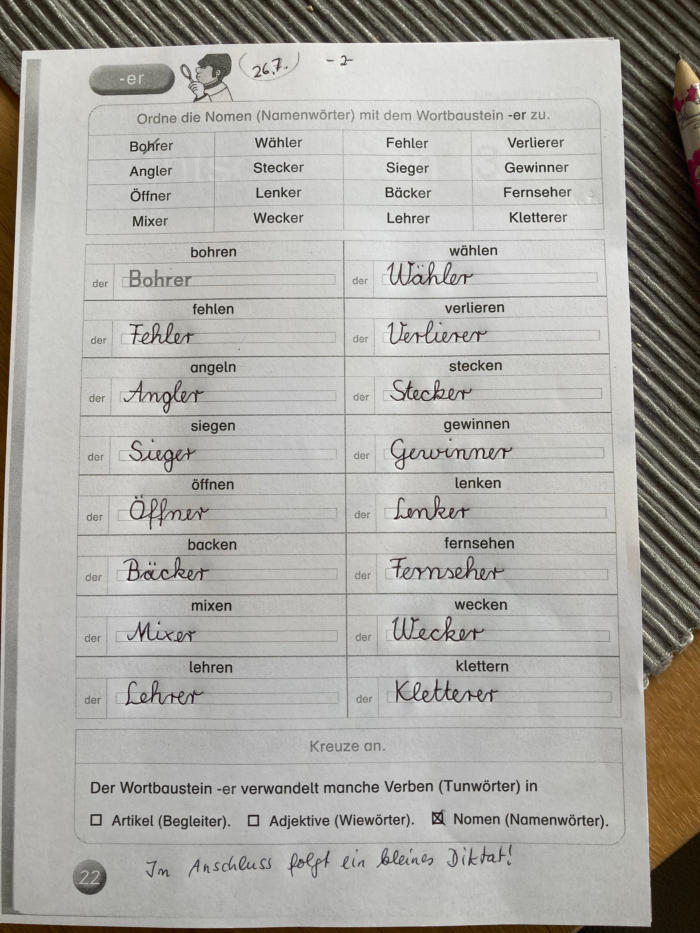 -er 26.7. -2-
Ordne die Nomen (Namenwörter) mit dem Wortbaustein -er zu.
Bohrer Wähler Fehler Verlierer
Angler Stecker Sieger Gewinner
Öffner Lenker Bäcker Fernseher
Mixer Wecker Lehrer Kletterer
bohren wählen
der Bohrer der Wähler
fehlen verlieren
der Fehler der Verlierer
angeln stecken
der Angler der Stecker
siegen gewinnen
der Sieger der Gewinner
öffnen lenken
der Öffner der Lenker
backen fernsehen
der Bäcker der Fernseher
mixen wecken
der Mixer der Wecker
lehren klettern
der Lehrer der Kletterer
Kreuze an.
Der Wortbaustein -er verwandelt manche Verben (Tunwörter) in
☐ Artikel (Begleiter). ☐ Adjektive (Wiewörter). ☒ Nomen (Namenwörter).
22 Im Anschluss folgt ein kleines Diktat!